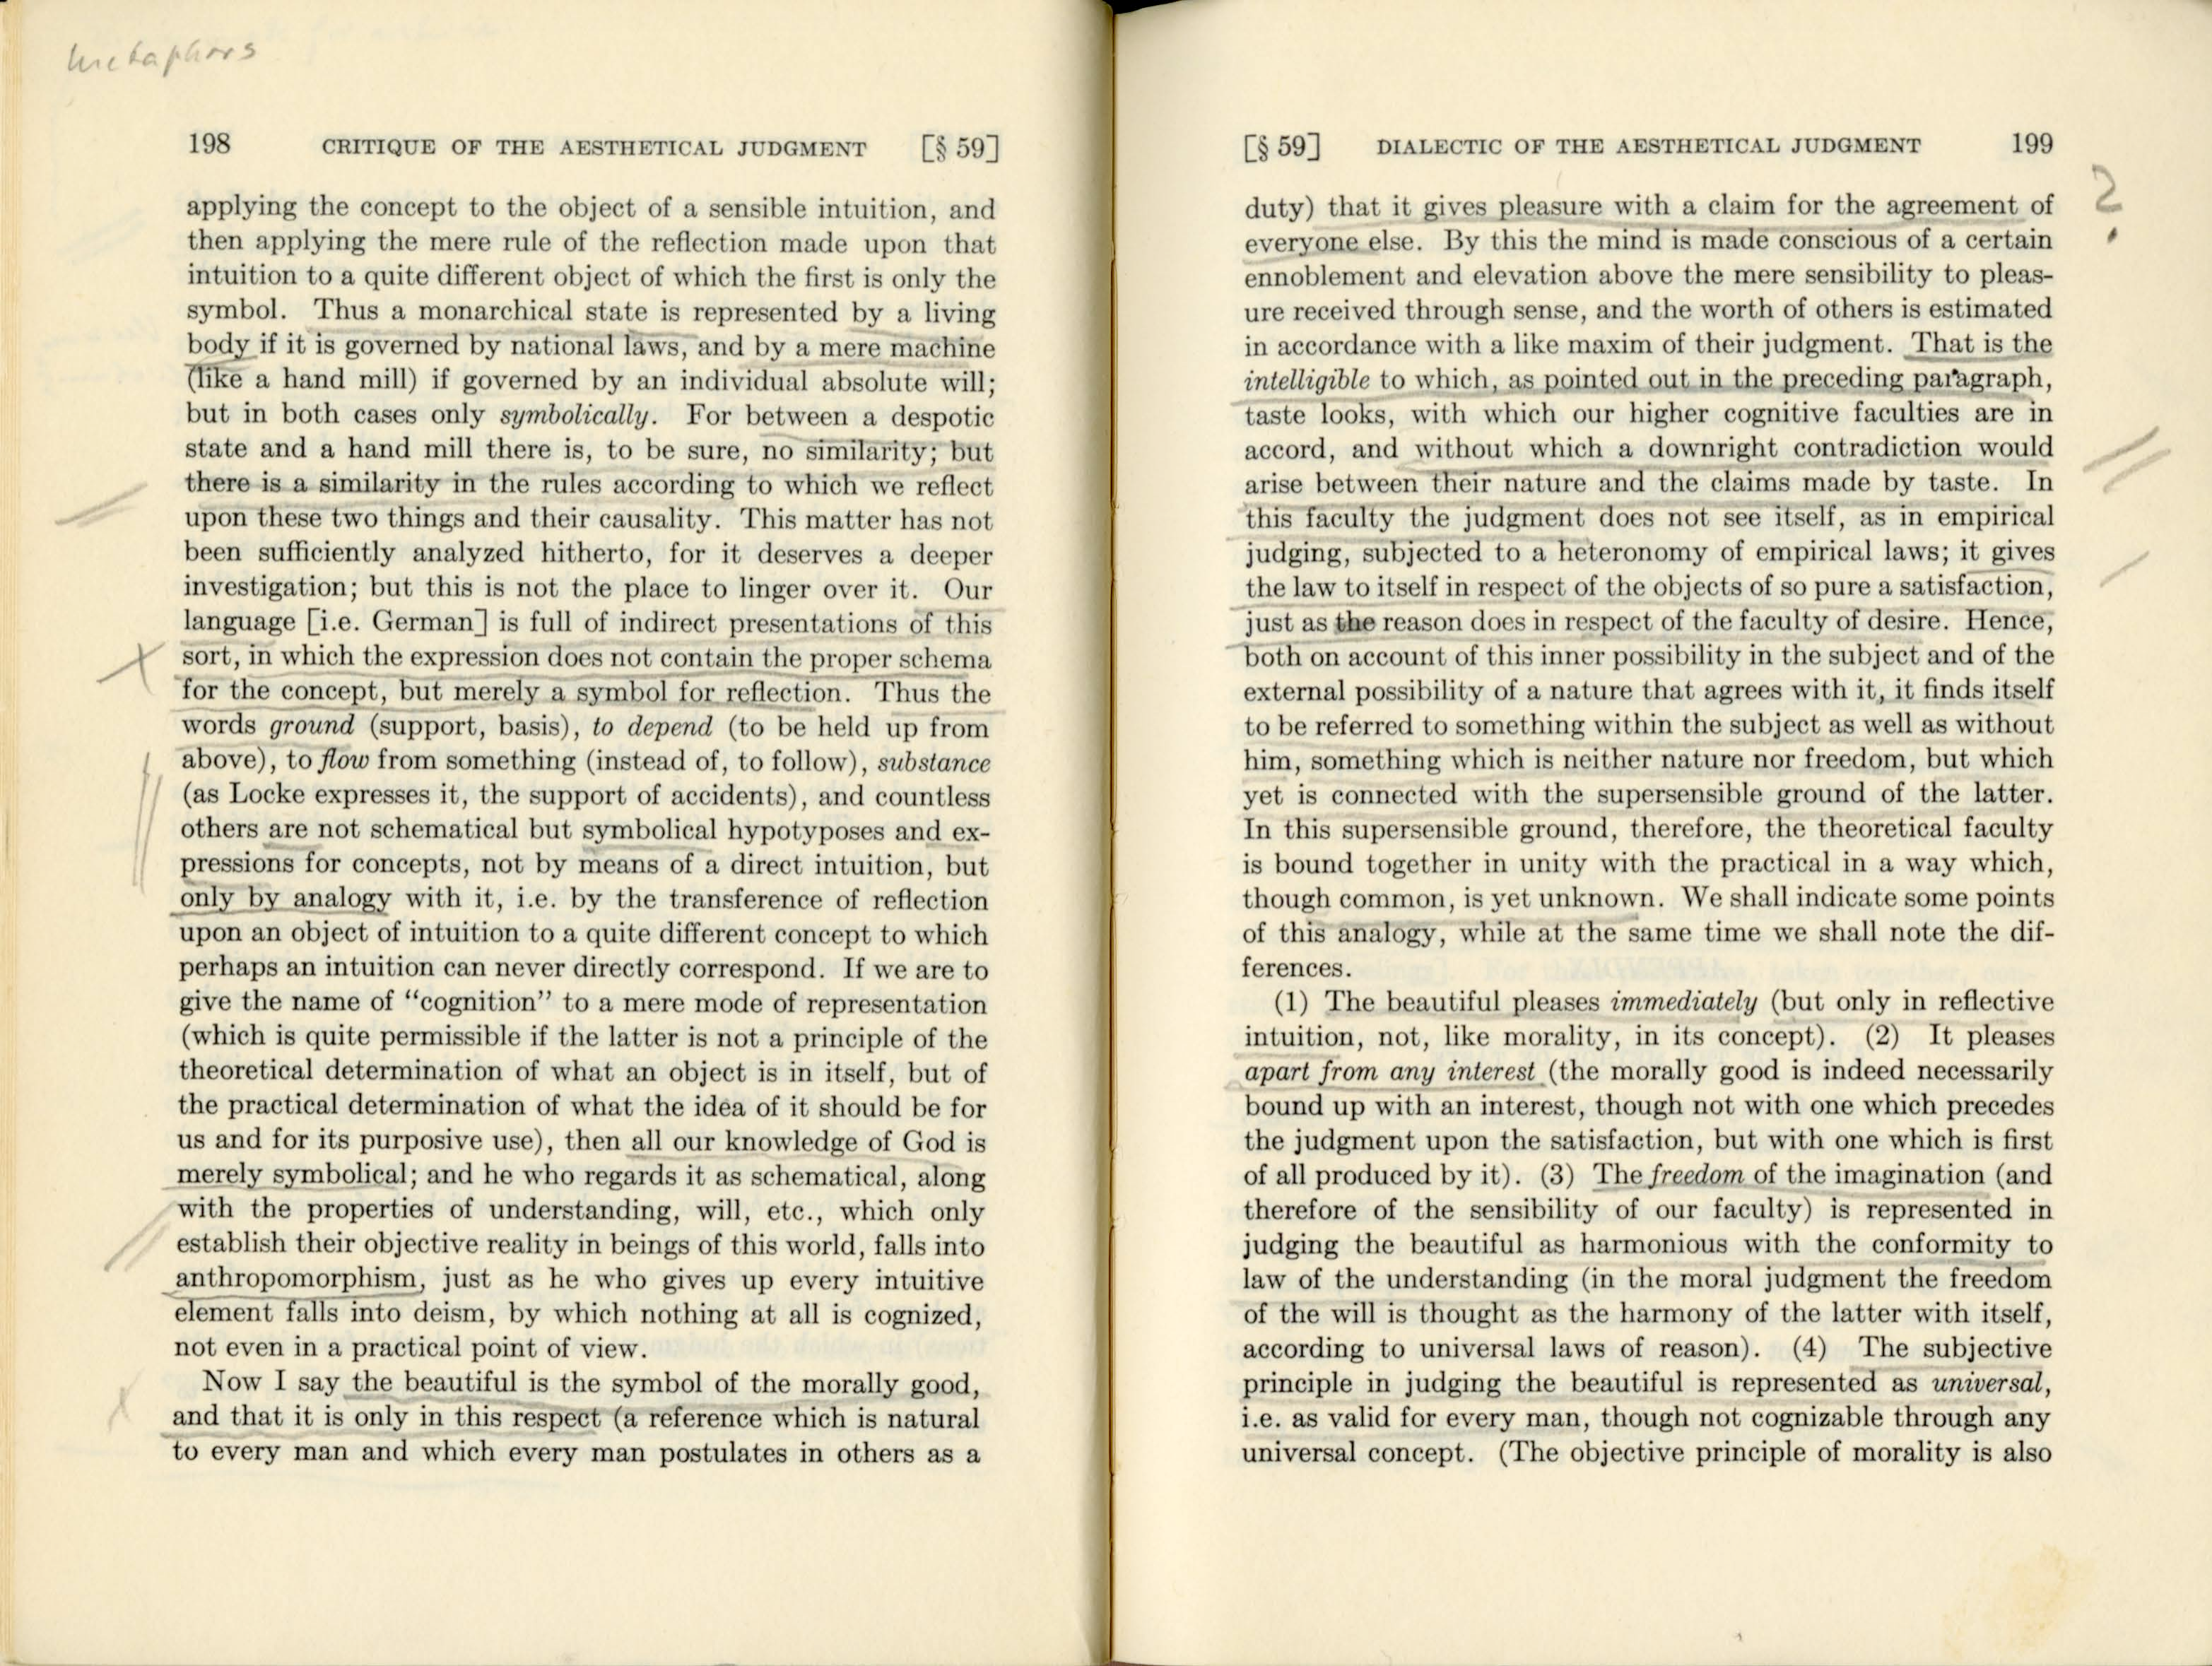 metaphors
198 CRITIQUE OF THE AESTHETICAL JUDGMENT [§ 59]
applying the concept to the object of a sensible intuition, and
then applying the mere rule of the reflection made upon that
intuition to a quite different object of which the first is only the
symbol. Thus a monarchical state is represented by a living
body if it is governed by national laws, and by a mere machine
(like a hand mill) if governed by an individual absolute will;
but in both cases only symbolically. For between a despotic
state and a hand mill there is, to be sure, no similarity; but
there is a similarity in the rules according to which we reflect
upon these two things and their causality. This matter has not
been sufficiently analyzed hitherto, for it deserves a deeper
investigation; but this is not the place to linger over it. Our
language [i.e. German] is full of indirect presentations of this
sort, in which the expression does not contain the proper schema
for the concept, but merely a symbol for reflection. Thus the
words ground (support, basis), to depend (to be held up from
above), to flow from something (instead of, to follow), substance
(as Locke expresses it, the support of accidents), and countless
others are not schematical but symbolical hypotyposes and ex-
pressions for concepts, not by means of a direct intuition, but
only by analogy with it, i.e. by the transference of reflection
upon an object of intuition to a quite different concept to which
perhaps an intuition can never directly correspond. If we are to
give the name of “cognition” to a mere mode of representation
(which is quite permissible if the latter is not a principle of the
theoretical determination of what an object is in itself, but of
the practical determination of what the idea of it should be for
us and for its purposive use), then all our knowledge of God is
merely symbolical; and he who regards it as schematical, along
with the properties of understanding, will, etc., which only
establish their objective reality in beings of this world, falls into
anthropomorphism, just as he who gives up every intuitive
element falls into deism, by which nothing at all is cognized,
not even in a practical point of view.
Now I say the beautiful is the symbol of the morally good,
and that it is only in this respect (a reference which is natural
to every man and which every man postulates in others as a
[§ 59] DIALECTIC OF THE AESTHETICAL JUDGMENT 199
duty) that it gives pleasure with a claim for the agreement of ?
everyone else. By this the mind is made conscious of a certain
ennoblement and elevation above the mere sensibility to pleas-
ure received through sense, and the worth of others is estimated
in accordance with a like maxim of their judgment. That is the
intelligible to which, as pointed out in the preceding paragraph,
taste looks, with which our higher cognitive faculties are in
accord, and without which a downright contradiction would
arise between their nature and the claims made by taste. In
this faculty the judgment does not see itself, as in empirical
judging, subjected to a heteronomy of empirical laws; it gives
the law to itself in respect of the objects of so pure a satisfaction,
just as the reason does in respect of the faculty of desire. Hence,
both on account of this inner possibility in the subject and of the
external possibility of a nature that agrees with it, it finds itself
to be referred to something within the subject as well as without
him, something which is neither nature nor freedom, but which
yet is connected with the supersensible ground of the latter.
In this supersensible ground, therefore, the theoretical faculty
is bound together in unity with the practical in a way which,
though common, is yet unknown. We shall indicate some points
of this analogy, while at the same time we shall note the dif-
ferences.
(1) The beautiful pleases immediately (but only in reflective
intuition, not, like morality, in its concept). (2) It pleases
apart from any interest (the morally good is indeed necessarily
bound up with an interest, though not with one which precedes
the judgment upon the satisfaction, but with one which is first
of all produced by it). (3) The freedom of the imagination (and
therefore of the sensibility of our faculty) is represented in
judging the beautiful as harmonious with the conformity to
law of the understanding (in the moral judgment the freedom
of the will is thought as the harmony of the latter with itself,
according to universal laws of reason). (4) The subjective
principle in judging the beautiful is represented as universal,
i.e. as valid for every man, though not cognizable through any
universal concept. (The objective principle of morality is also